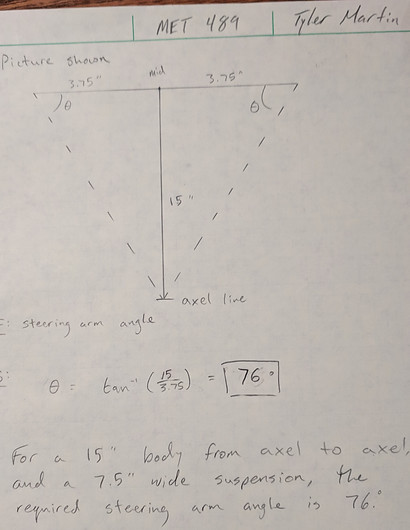 MET 489 Tyler Martin
Picture shown
3.75" mid 3.75"
θ θ
15"
axel line
: steering arm angle
:
θ = tan⁻¹ (15/3.75) = 76°
For a 15" body from axel to axel,
and a 7.5" wide suspension, the
required steering arm angle is 76°.